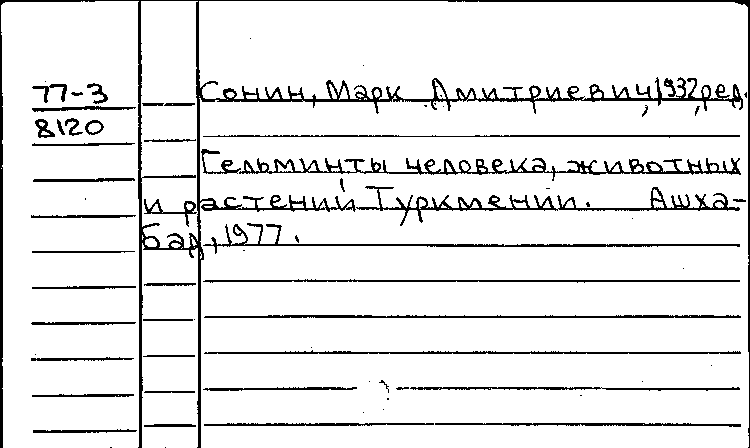 77-3 Сонин, Марк Дмитриевич, 1932, ред.
8120
Гельминты человека, животных
и растений Туркмении. Ашха-
бад, 1977.